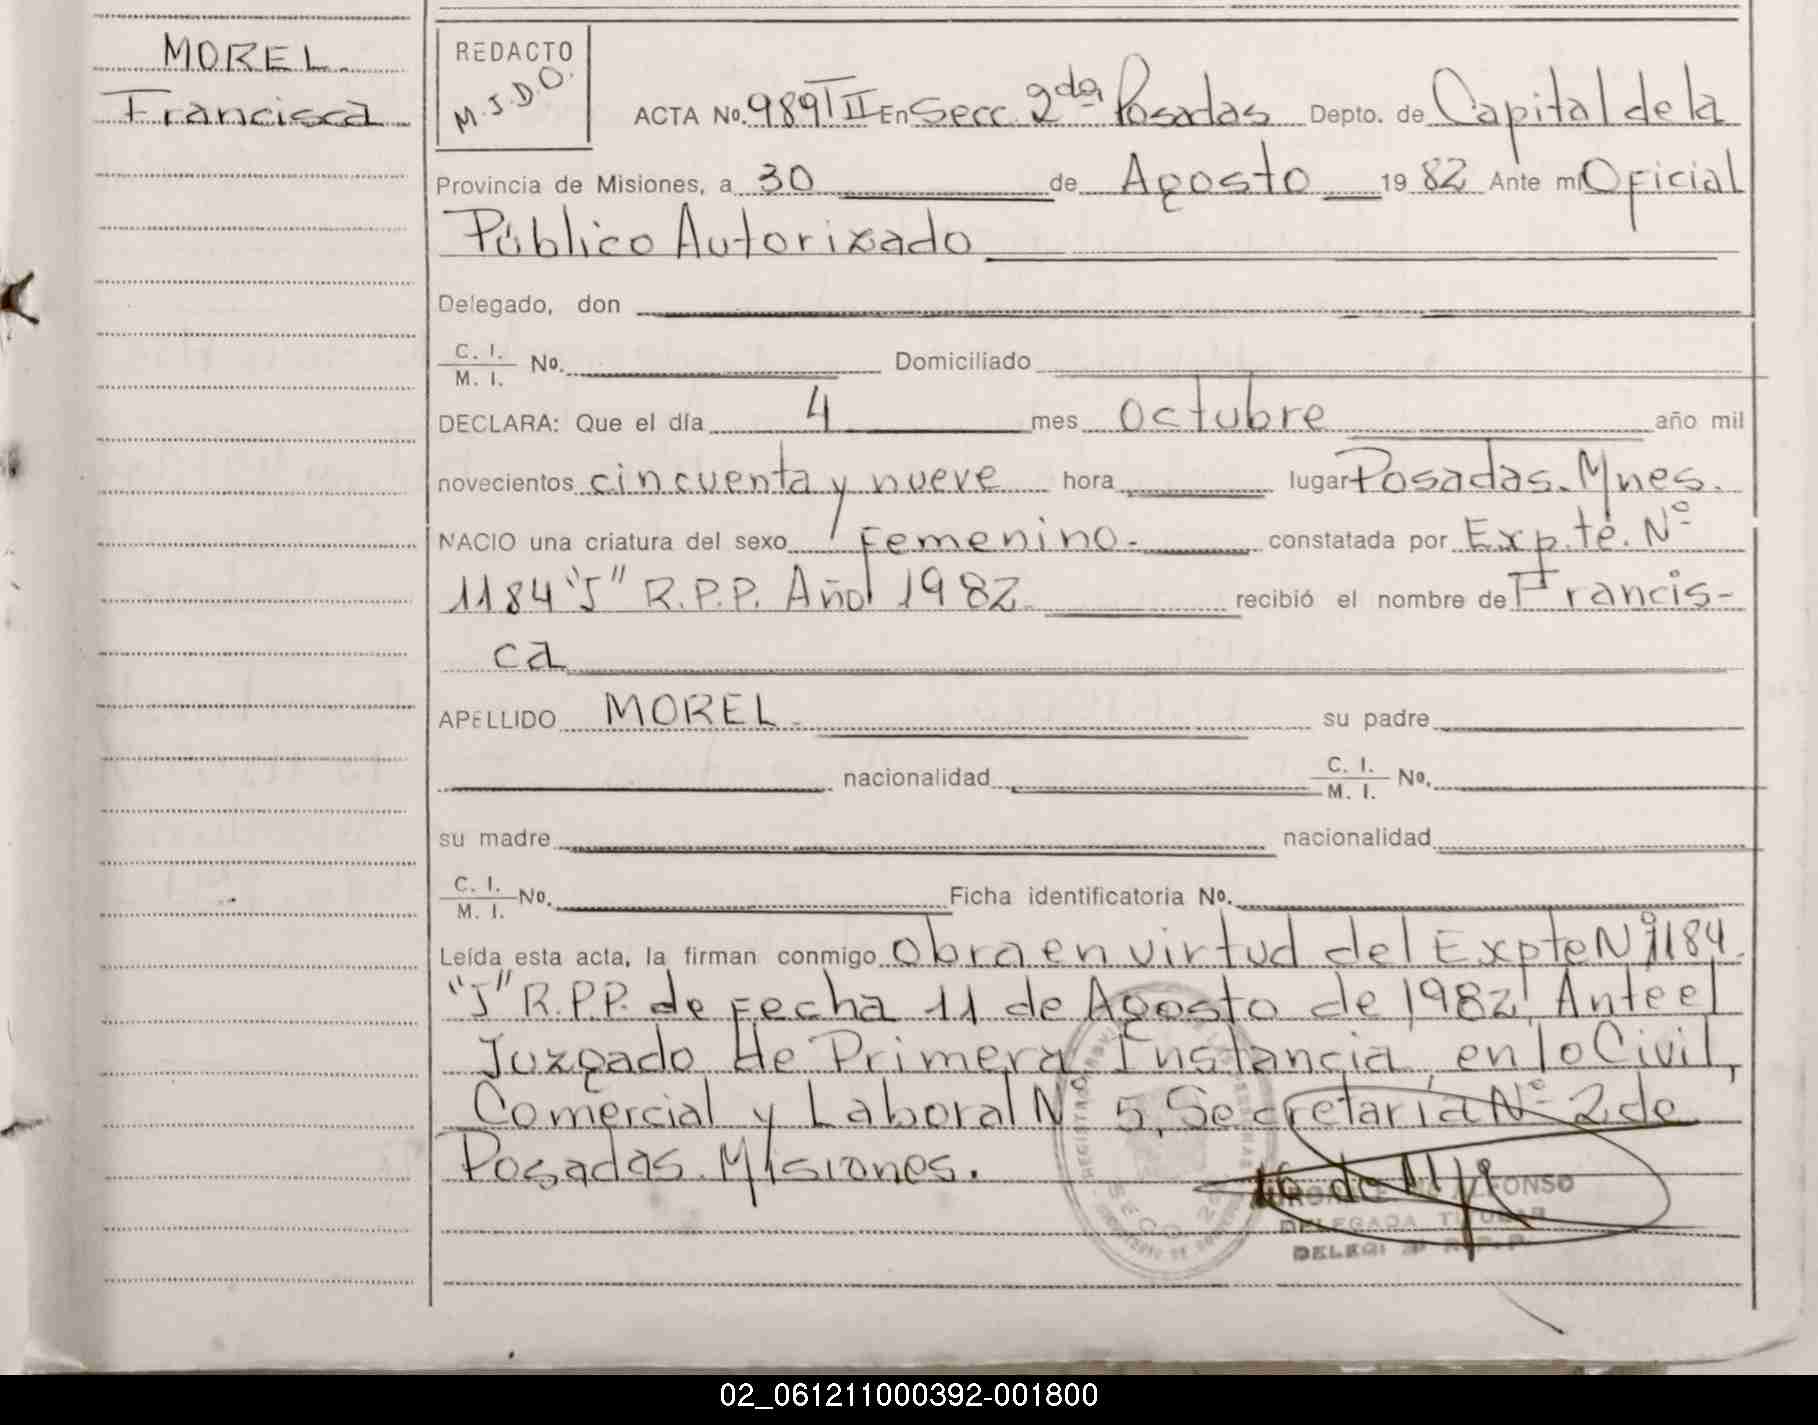 MOREL.
Francisca
REDACTO
M.J.D.O.
ACTA No. 989 TII En Secc. 2da Posadas Depto. de Capital de la
Provincia de Misiones, a 30 de Agosto 1982 Ante mi Oficial
Público Autorizado
Delegado, don
C. I.
M. I. No. Domiciliado
DECLARA: Que el día 4 mes octubre año mil
novecientos cincuenta y nueve hora lugar Posadas. Mnes.
NACIO una criatura del sexo Femenino.- constatada por Exp.te. Nº
1184 "J" R.P.P. Año 1982 recibió el nombre de Francis-
ca
APELLIDO MOREL. su padre
nacionalidad C. I.
M. I. No.
su madre nacionalidad
C. I.
M. I. No. Ficha identificatoria No.
Leída esta acta, la firman conmigo Obra en virtud del Expte Nº 1184
"J" R.P.P. de Fecha 11 de Agosto de 1982, Ante el
Juzgado de Primera Instancia, en lo Civil,
Comercial y Laboral Nº 5, Secretaría Nº 2 de
Posadas. Misiones.
SECC. 2
ALFONSO
DELEGADA TITULAR
02_061211000392-001800